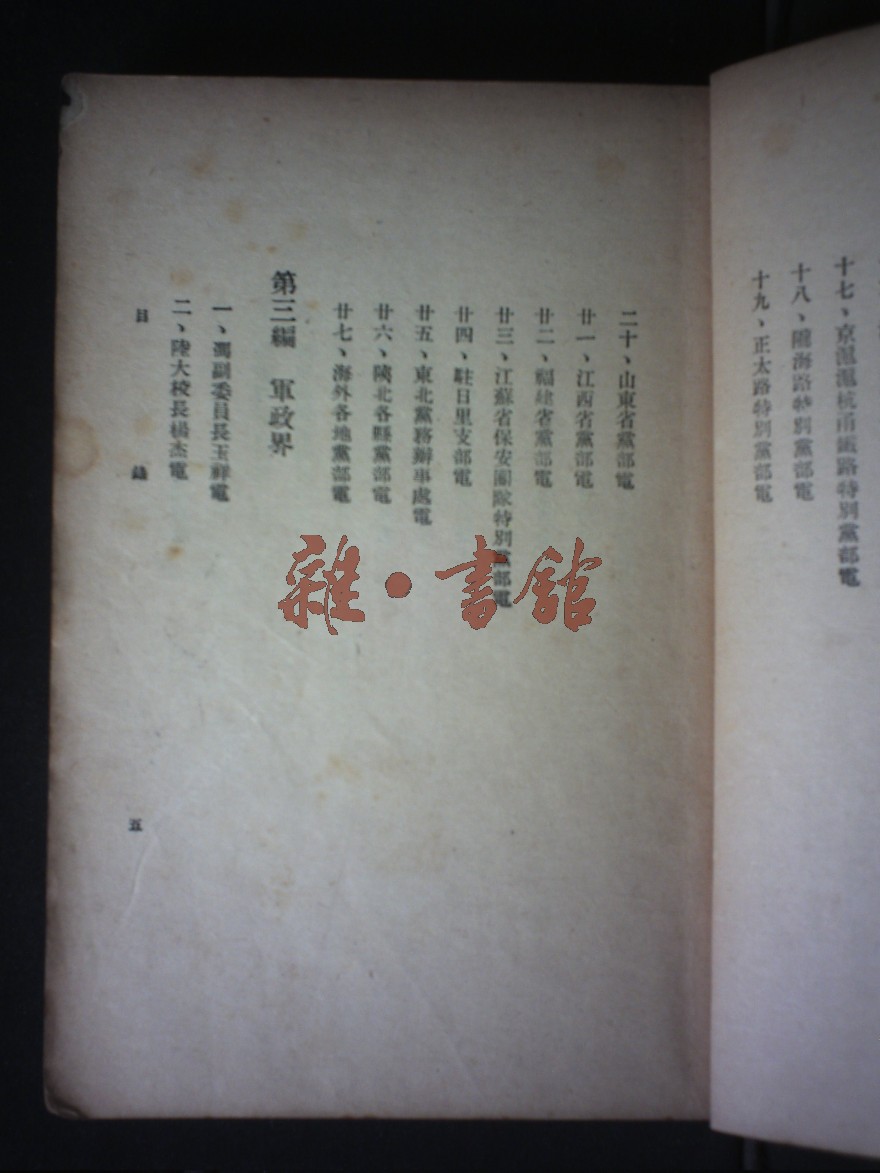 十七、京滬滬杭甬鐵路特別黨部電
十八、隴海路特別黨部電
十九、正太路特別黨部電
二十、山東省黨部電
廿一、江西省黨部電
廿二、福建省黨部電
廿三、江蘇省保安團隊特別黨部電
廿四、駐日里支部電
廿五、東北黨務辦事處電
廿六、陝北各縣黨部電
廿七、海外各地黨部電
第三編　軍政界
一、馮副委員長玉祥電
二、陸大校長楊杰電
目　錄
五
雜・書館